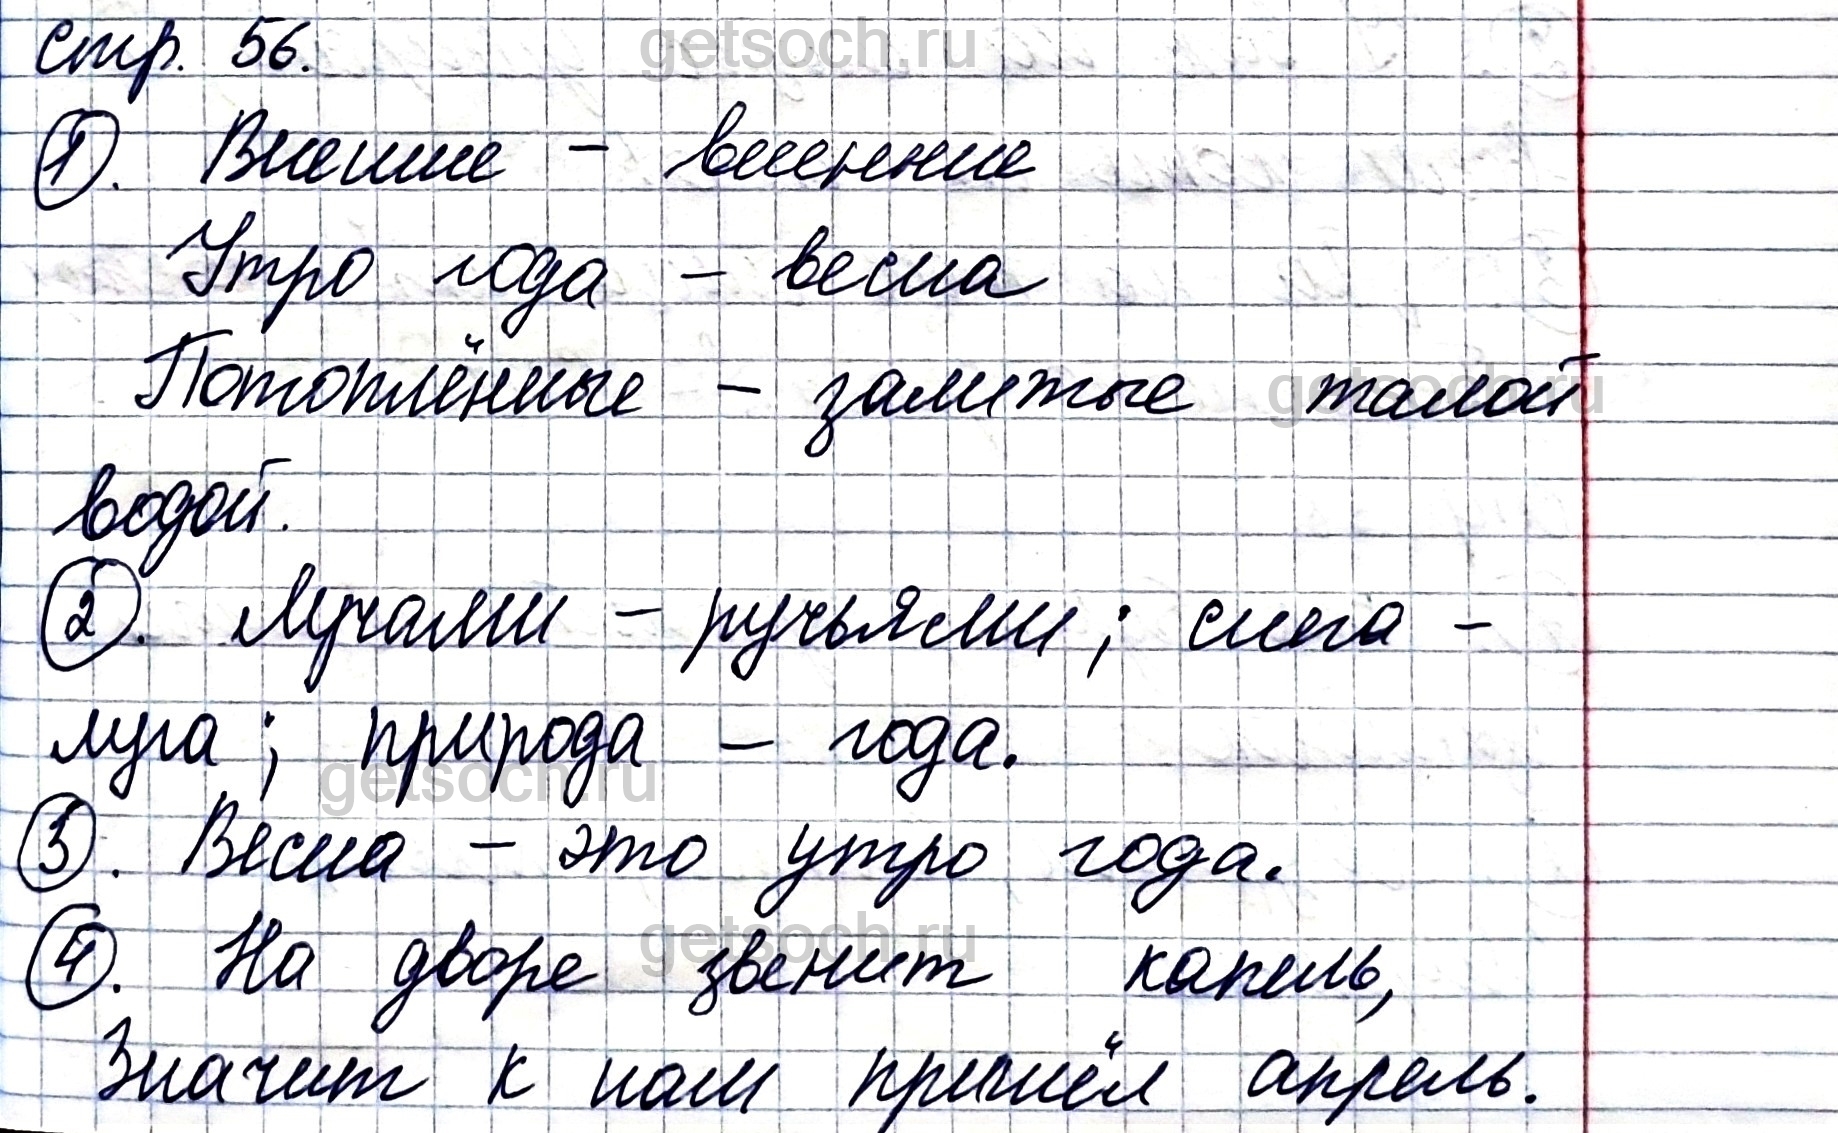 стр. 56.
getsoch.ru
1. Вешние - весенние
Утро года - весна
Потоплённые - залитые талой
getsoch.ru
водой.
2. Лучами - ручьями; снега -
луга; природа - года.
getsoch.ru
3. Весна - это утро года.
4. На дворе звенит капель,
getsoch.ru
Значит к нам пришёл апрель.